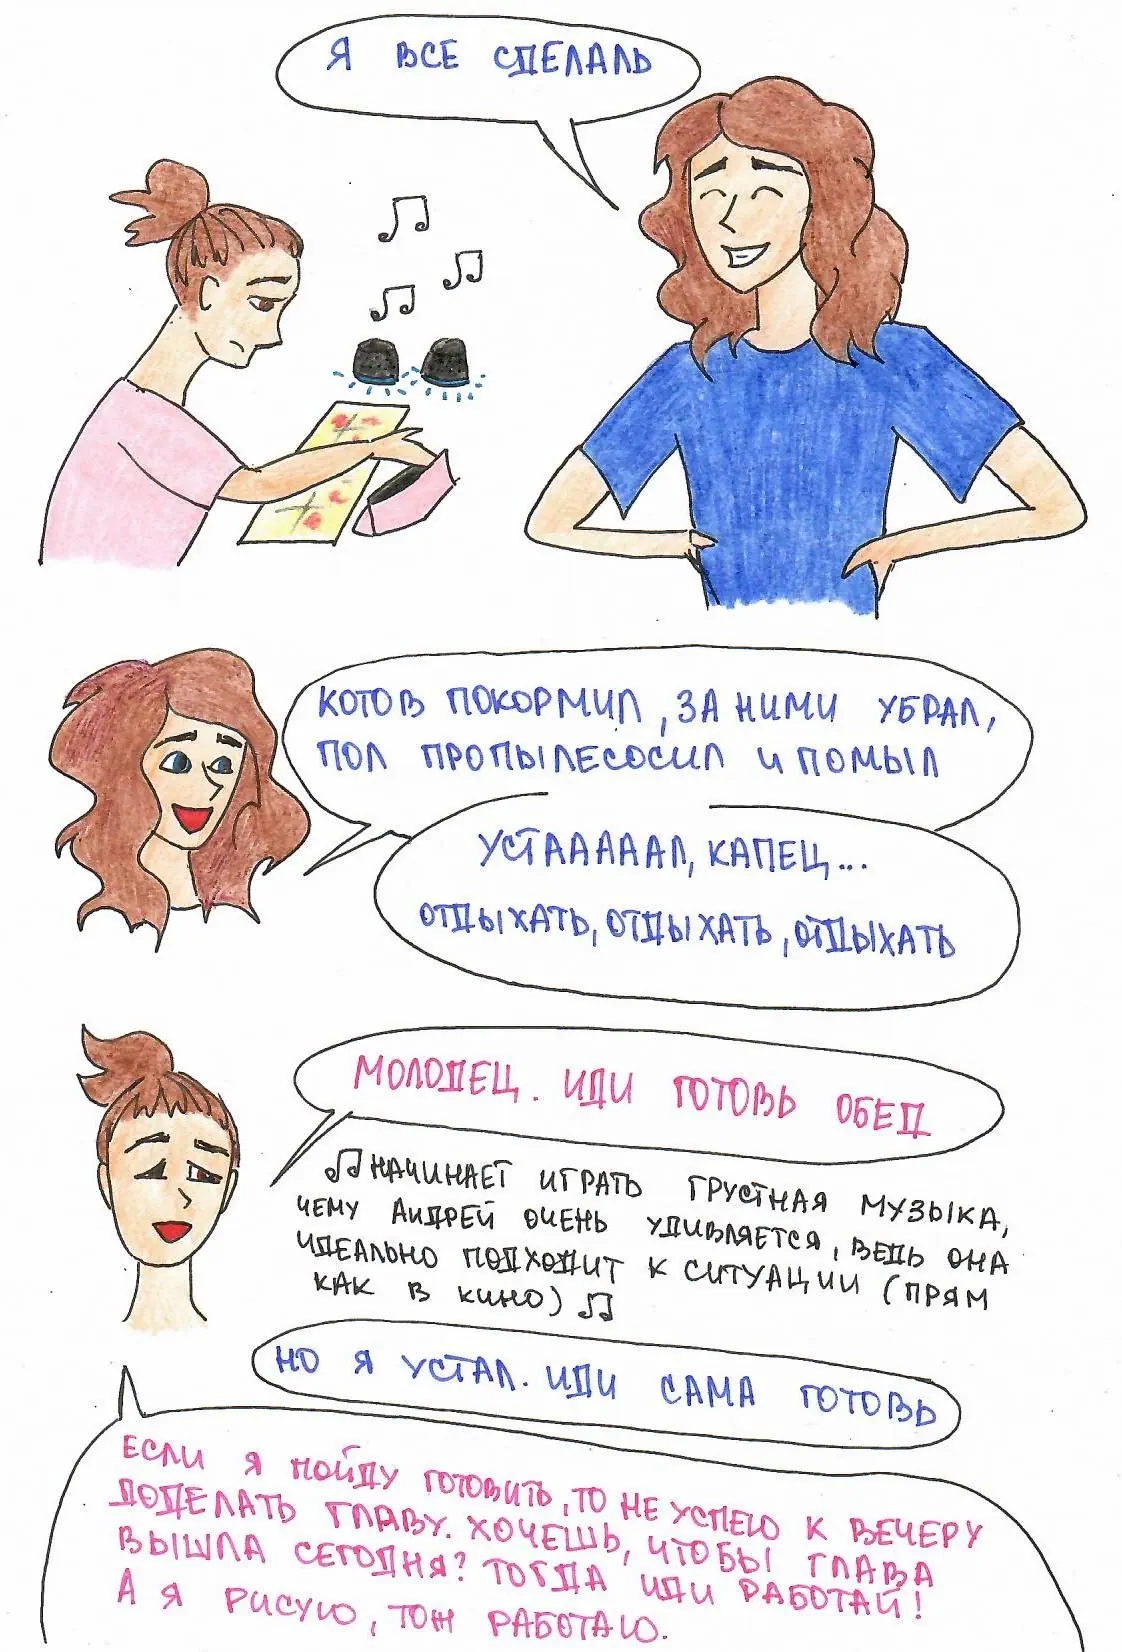 Я ВСЕ СДЕЛАЛЬ
КОТОВ ПОКОРМИЛ, ЗА НИМИ УБРАЛ,
ПОЛ ПРОПЫЛЕСОСИЛ И ПОМЫЛ
УСТАААААЛ, КАПЕЦ...
ОТДЫХАТЬ, ОТДЫХАТЬ, ОТДЫХАТЬ
МОЛОДЕЦ. ИДИ ГОТОВЬ ОБЕД
НАЧИНАЕТ ИГРАТЬ ГРУСТНАЯ МУЗЫКА,
ЧЕМУ АНДРЕЙ ОЧЕНЬ УДИВЛЯЕТСЯ, ВЕДЬ ОНА
ИДЕАЛЬНО ПОДХОДИТ К СИТУАЦИИ (ПРЯМ
КАК В КИНО)
НО Я УСТАЛ. ИДИ САМА ГОТОВЬ
ЕСЛИ Я ПОЙДУ ГОТОВИТЬ, ТО НЕ УСПЕЮ К ВЕЧЕРУ
ДОДЕЛАТЬ ГЛАВУ. ХОЧЕШЬ, ЧТОБЫ ГЛАВА
ВЫШЛА СЕГОДНЯ? ТОГДА ИДИ РАБОТАЙ!
А Я РИСУЮ, ТОЖ РАБОТАЮ.